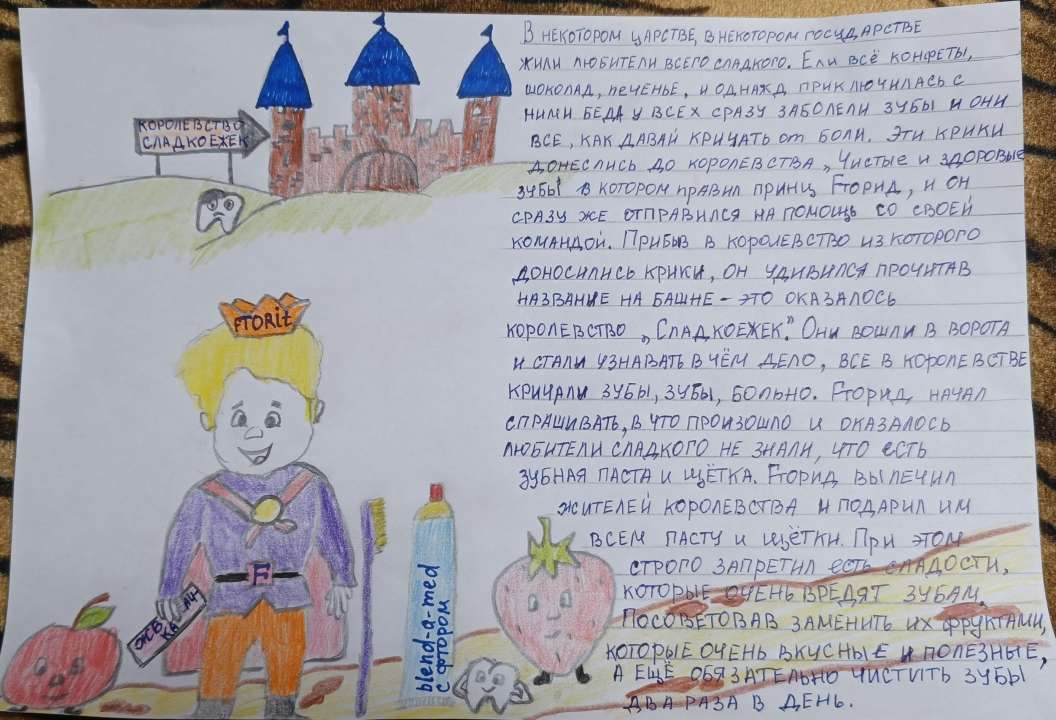 В НЕКОТОРОМ ЦАРСТВЕ, В НЕКОТОРОМ ГОСУДАРСТВЕ
ЖИЛИ ЛЮБИТЕЛИ ВСЕГО СЛАДКОГО. ЕЛИ ВСЁ КОНФЕТЫ,
ШОКОЛАД, ПЕЧЕНЬЕ, И ОДНАЖД ПРИКЛЮЧИЛАСЬ С
НИМИ БЕДА У ВСЕХ СРАЗУ ЗАБОЛЕЛИ ЗУБЫ И ОНИ
ВСЕ, КАК ДАВАЙ КРИЧАТЬ ОТ БОЛИ. ЭТИ КРИКИ
ДОНЕСЛИСЬ ДО КОРОЛЕВСТВА „ЧИСТЫЕ И ЗДОРОВЫЕ
ЗУБЫ" В КОТОРОМ ПРАВИЛ ПРИНЦ FТОРИД, И ОН
СРАЗУ ЖЕ ОТПРАВИЛСЯ НА ПОМОЩЬ СО СВОЕЙ
КОМАНДОЙ. ПРИБЫВ В КОРОЛЕВСТВО ИЗ КОТОРОГО
ДОНОСИЛИСЬ КРИКИ, ОН УДИВИЛСЯ ПРОЧИТАВ
НАЗВАНИЕ НА БАШНЕ - ЭТО ОКАЗАЛОСЬ
КОРОЛЕВСТВО „СЛАДКОЕЖЕК". ОНИ ВОШЛИ В ВОРОТА
И СТАЛИ УЗНАВАТЬ В ЧЁМ ДЕЛО, ВСЕ В КОРОЛЕВСТВЕ
КРИЧАЛИ ЗУБЫ, ЗУБЫ, БОЛЬНО. FТОРИД НАЧАЛ
СПРАШИВАТЬ, В ЧТО ПРОИЗОШЛО И ОКАЗАЛОСЬ
ЛЮБИТЕЛИ СЛАДКОГО НЕ ЗНАЛИ, ЧТО ЕСТЬ
ЗУБНАЯ ПАСТА И ЩЁТКА. FТОРИД ВЫЛЕЧИЛ
ЖИТЕЛЕЙ КОРОЛЕВСТВА И ПОДАРИЛ ИМ
ВСЕМ ПАСТУ И ЩЁТКИ. ПРИ ЭТОМ
СТРОГО ЗАПРЕТИЛ ЕСТЬ СЛАДОСТИ,
КОТОРЫЕ ОЧЕНЬ ВРЕДЯТ ЗУБАМ.
ПОСОВЕТОВАВ ЗАМЕНИТЬ ИХ ФРУКТАМИ,
КОТОРЫЕ ОЧЕНЬ ВКУСНЫЕ И ПОЛЕЗНЫЕ,
А ЕЩЁ ОБЯЗАТЕЛЬНО ЧИСТИТЬ ЗУБЫ
ДВА РАЗА В ДЕНЬ.
КОРОЛЕВСТВО
СЛАДКОЕЖЕК
FTORit
F
blend-a-med
с фтором